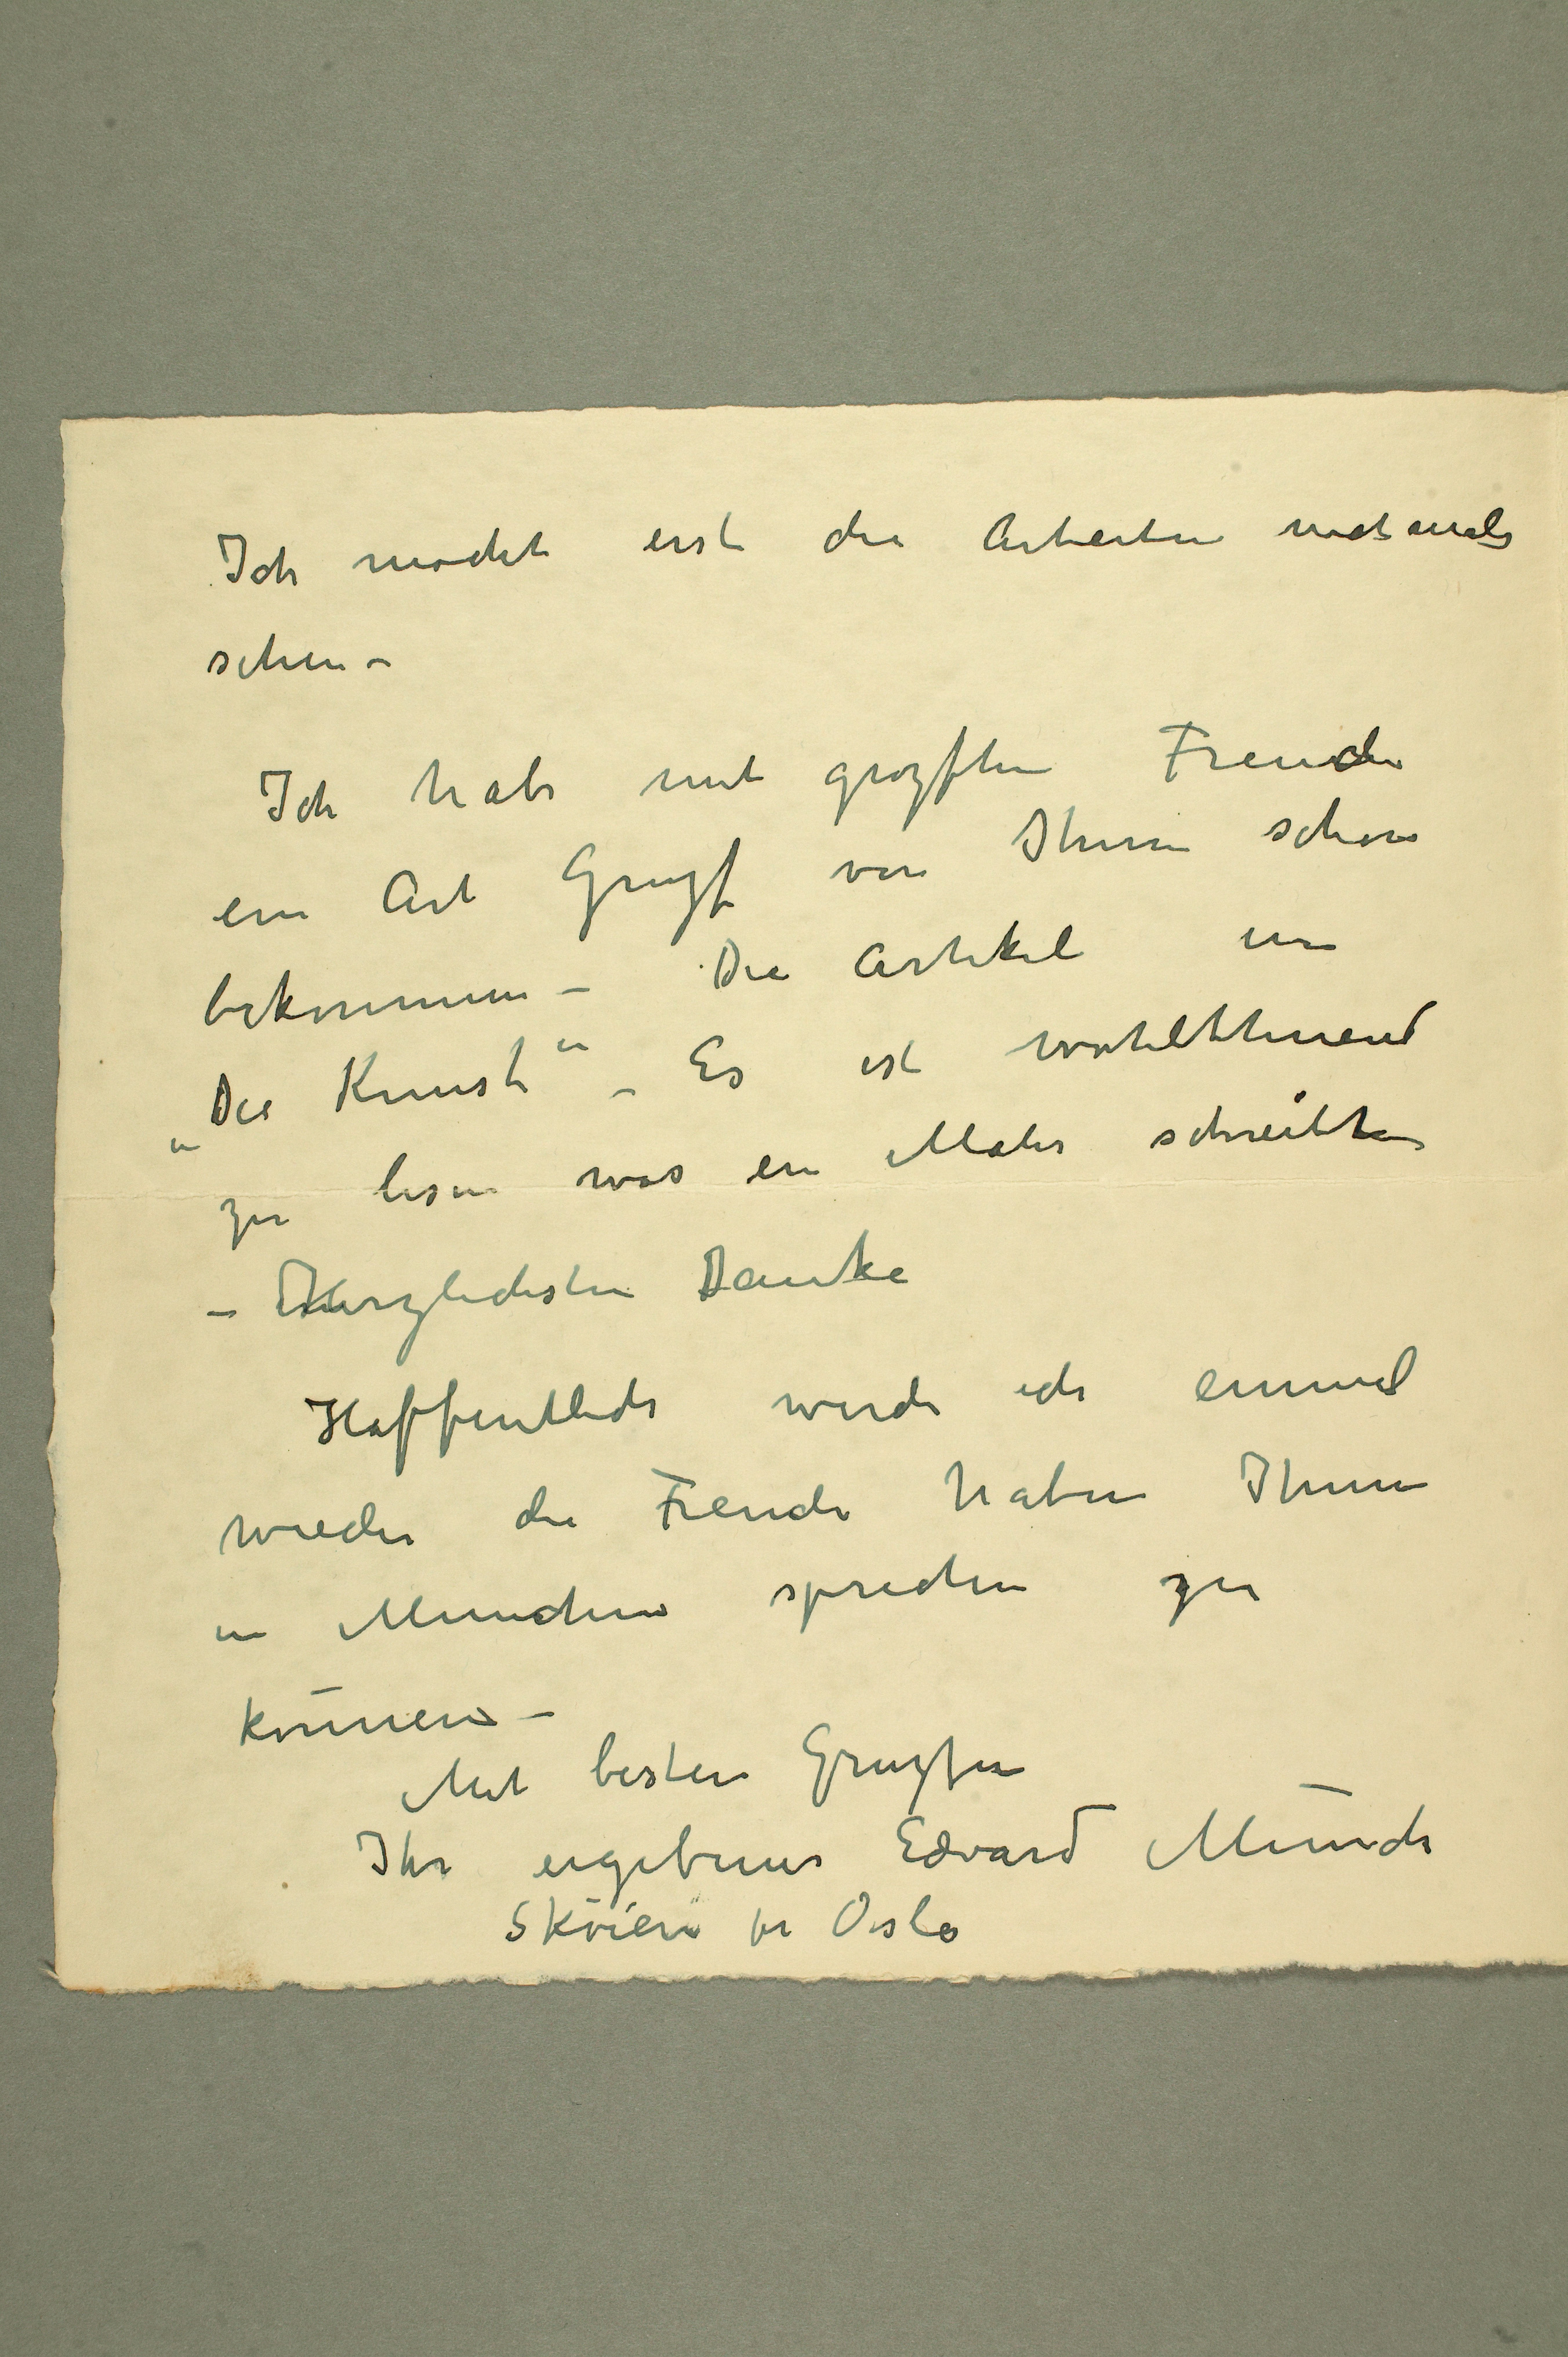 Ich möcht erst die Arbeiten nochmals
sehen –
Ich habe mit grozsster Freude
ein Art Gruzs von Ihnen schon
bekommen – Die Artikel in
„Die Kunst“ – Es ist wohlthuend
zu lesen was ein Maler schreibt
– Herzlichsten Danke
Hoffentlich werde ich einmal
wieder die Freude haben Ihnen
in München sprechen zu
können –
Mit besten Gruzsen
Ihr ergebener Edvard Munch
Sköien pr Oslo